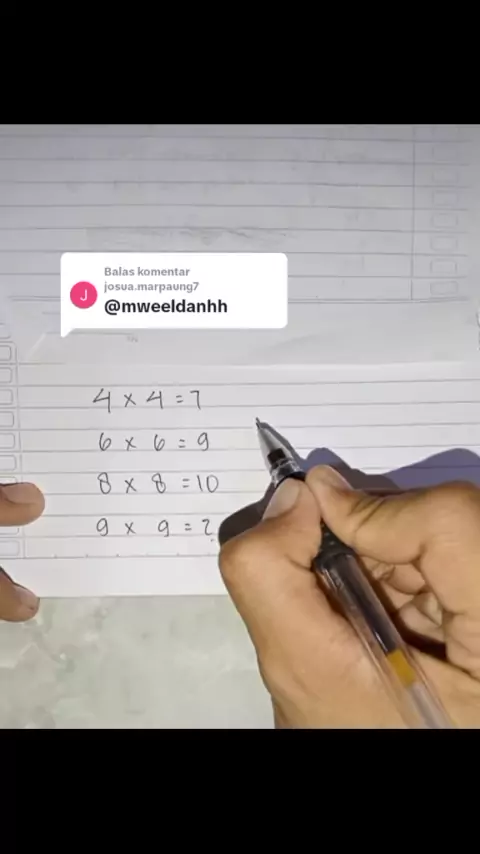 Balas komentar
josua.marpaung7
J
@mweeldanhh
4 × 4 = 7
6 × 6 = 9
8 × 8 = 10
9 × 9 = ?